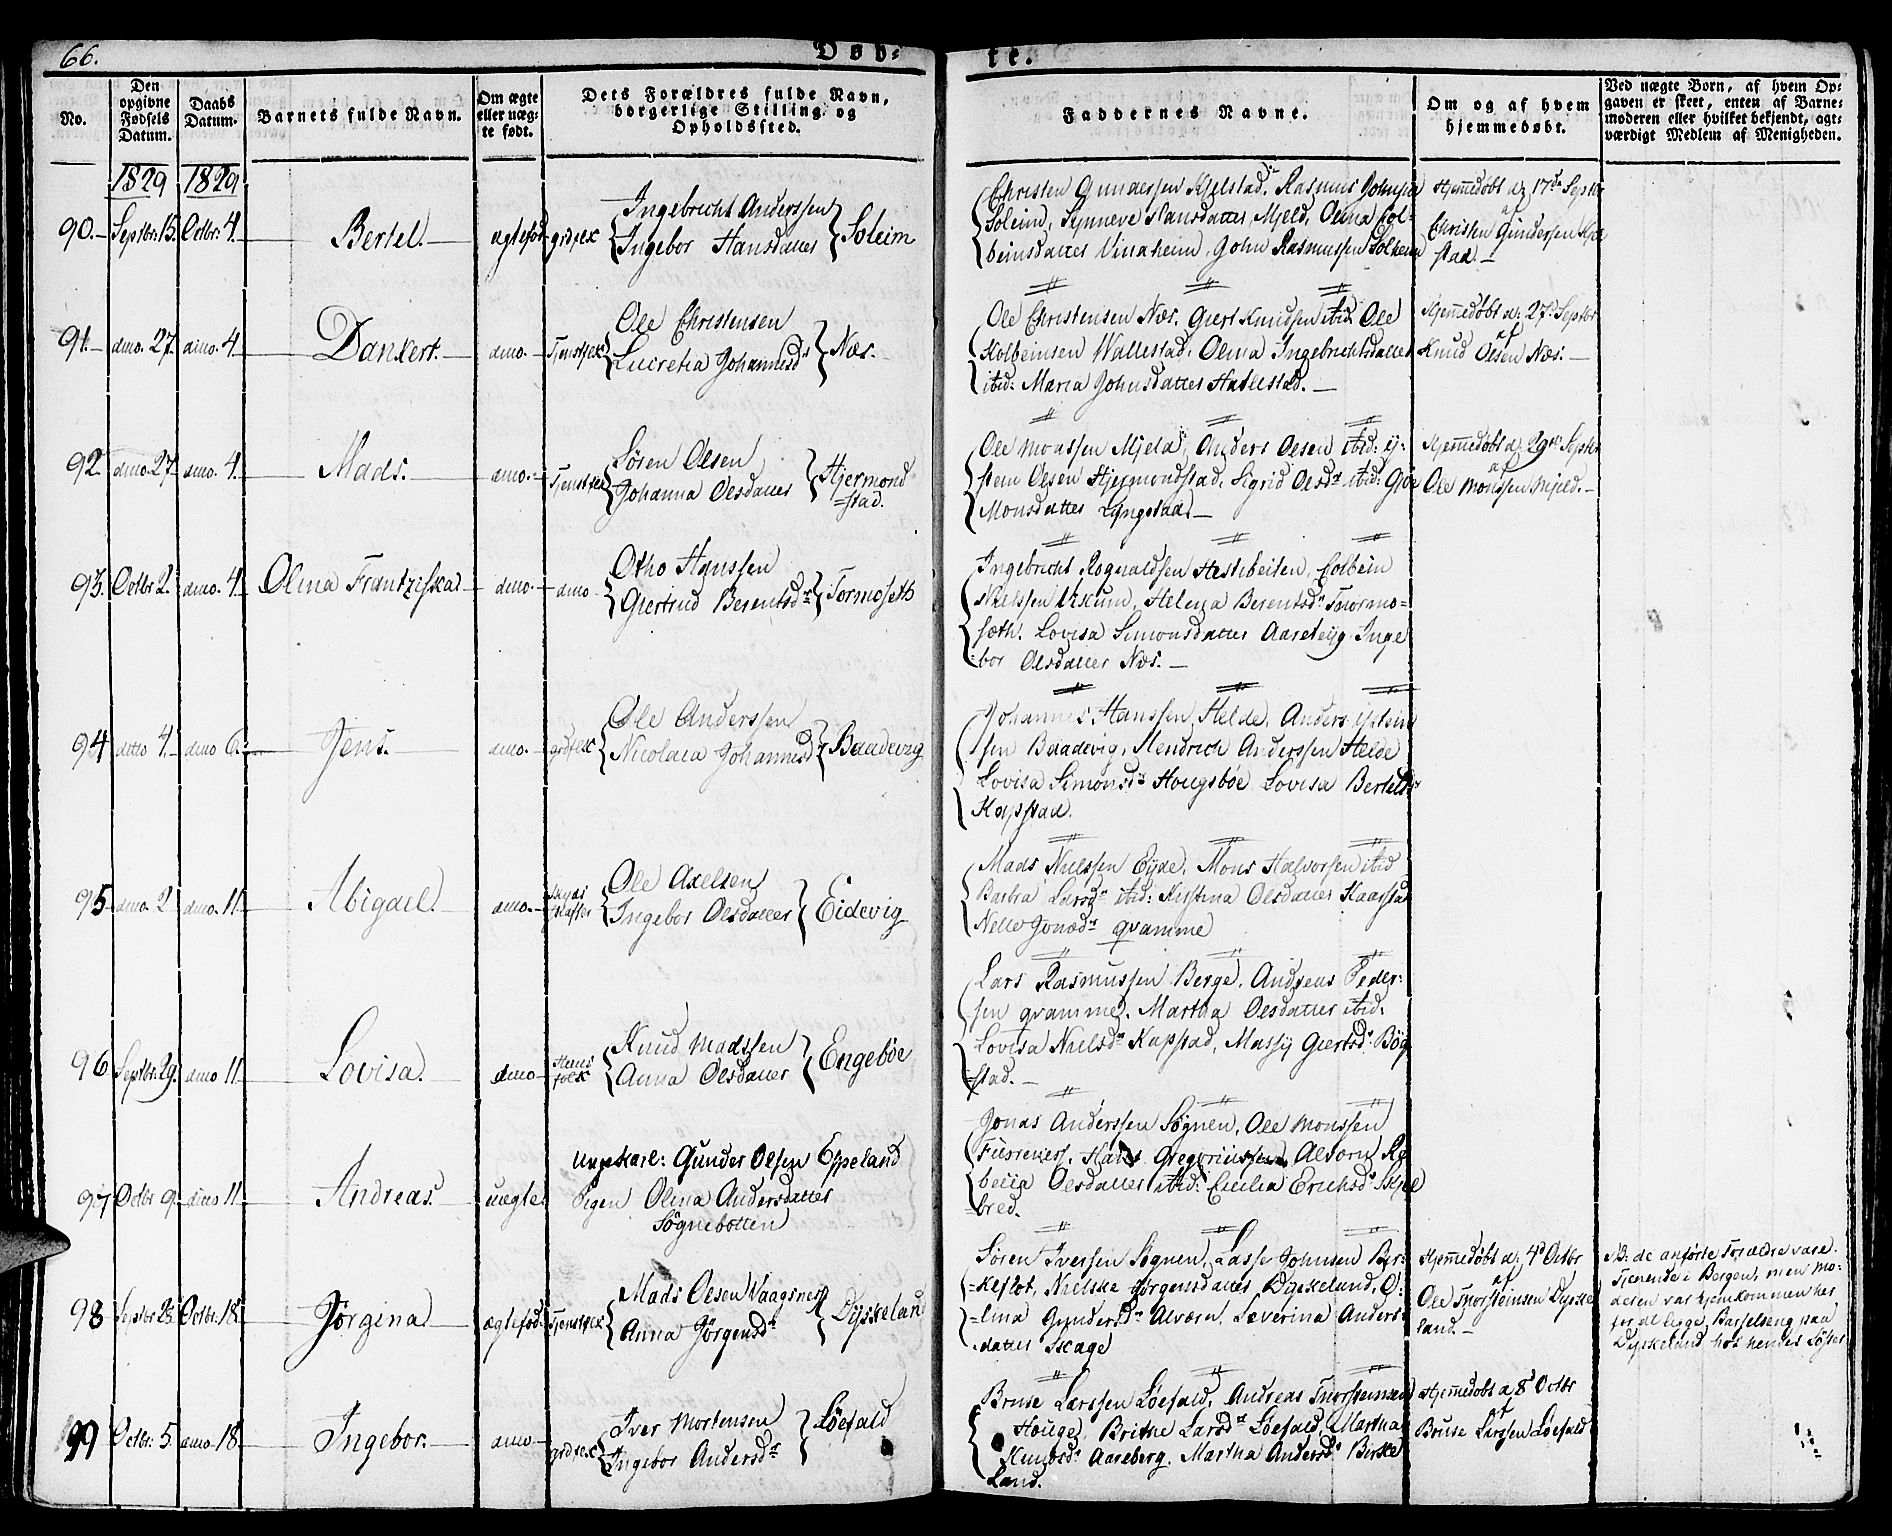 66.
Døb-
te.
No.
Den opgivne Fødsels Datum.
Daabs Datum.
Barnets fulde Navn.
Om ægte eller uægte født.
Dets Forældres fulde Navn, borgerlige Stilling og Opholdssted.
Faddernes Navne.
Om og af hvem hjemmedøbt.
Ved uægte Børn, af hvem Opgaven er skeet, enten af Barnemoderen eller hvilket bekjendt, agtværdigt Medlem af Menigheden.
1829 1829
90. Septbr: 15. Octbr: 4. Bertel. ægtefød
Ingebricht Anderssen
Ingebor Hansdatter Soleim
Christen Gunderssen Kjelstad, Rasmus Johnsen
Soleim, Synneve Hansdatter Mjeld, Olina Col-
beinsdatter Vinaheim, John Rasmussen Solheim
Hjemmedøbt d: 17de Septbr
af
Christen Gunderssen Kjel
stad.
91. dmo. 27. dmo. 4. Dankert. dmo. Tjenstfolk
Ole Christensen
Lucretia Johannesd Næs.
Ole Christensen Næs. Giert Knudsen ibid. Ole
Kolbeinsen Wallestad. Olina Ingebrichtsdatter
ibid: Maria Johnsdatter Hatlestad.
Hjemmedøbt d: 27de Septbr
af
Knud Olsen Næs.
92 dmo. 27 dmo. 4. Mads. dmo. Tjenstfolk
Sören Olsen
Johanna Olsdatter Hjermond-
stad.
Ole Monssen Mjeld, Anders Olsen ibid: Ey-
stein Olsen Hjermondstad, Sigrid Olsdr ibid: Gjöe
Monsdatter Lyngstad.
Hjemmedøbt d: 29de Septbr
af
Ole Monssen Mjeld.
93. Octbr 2. dmo. 4. Olina Frantziska dmo. dmo
Otho Hanssen
Giertrud Berentsdr Tormoseth
Ingebricht Rognaldsen Hestebeiten, Colbein
Nielssen Uskum, Helena Berentsdr Thormo-
sæth. Lovisa Simonsdatter Aareteig. Inge
bor Olsdatter Næs.
94 detto 4. dmo 6. Jens. dmo.
Ole Anderssen
Nicolaia Johannesd Baadevig
Johannes Hanssen Helde, Anders Eystein
sen Baadevig, Hendrich Anderssen Helde
Lovisa Simonsdr Hougsböe Lovisa Bertelsdr
Kapstad.
95 dmo. 2 dmo. 11. Abigael. dmo.
Ole Axelsen
Ingebor Olsdatter Eidevig
Mads Nielssen Eyde, Mons Halvorsen ibid
Barbra Larsdr ibid: Kirstina Olsdatter Kaarstad
Nelle Jonædr qvamme
96 Septbr: 29. dmo 11. Lovisa. dmo
Knud Madssen
Anna Olsdatter Engeböe
Lars Rasmussen Berge, Andreas Peder-
sen qvamme. Martha Olsdatter ibid:
Lovisa Nielsdr Kapstad, Massy Giertsdr Bög
stad.
97 Octbr 9. dmo 11. Andreas. uægte.
Ungekarl: Gunder Olsen Eppeland
Pigen Olina Andersdatter
Søgnebotten
Jonas Anderssen Søgnen, Ole Monssen
Furrenes, Hans Gregoriussen Alvorn, Re
beiia Olsdatter ibid: Cicilia Erichsdr Skjel
bred.
98 Septbr 25 Octbr: 18 Jørgina ægtefød: Tjenstfolk
Mads Olsen Vaagsnes
Anna Jørgensdr Dyskeland
Søren Iverssen Søgnen, Lasse Johnsen Bir-
keflot, Nielske Jørgensdatter Dyskeland, O-
lina Gundersdr Alvorn, Severina Anders-
datter Skage
Hjemmedøbt d: 4d Octbr
af
Ole Thorsteinsen Dyske
land.
NB: de anførte Forældre vare
Tjenende i Bergen, men Mo-
deren var hjemkommen her
for at ligge Barselseng paa
Dyskeland hos hendes Søster
99 Octbr: 5. dmo 18. Ingebor. dmo
Iver Mortensen
Ingebor Andersdr Löefald
Bruse Larssen Löefald, Andreas Thorsteinsen
Houge, Brithe Larsdr Löefald, Martha
Knudsdr Aareberg, Martha Andersdr Birke
land.
Hjemmedøbt d, 8d Octbr
af
Bruse Larssen Löefald